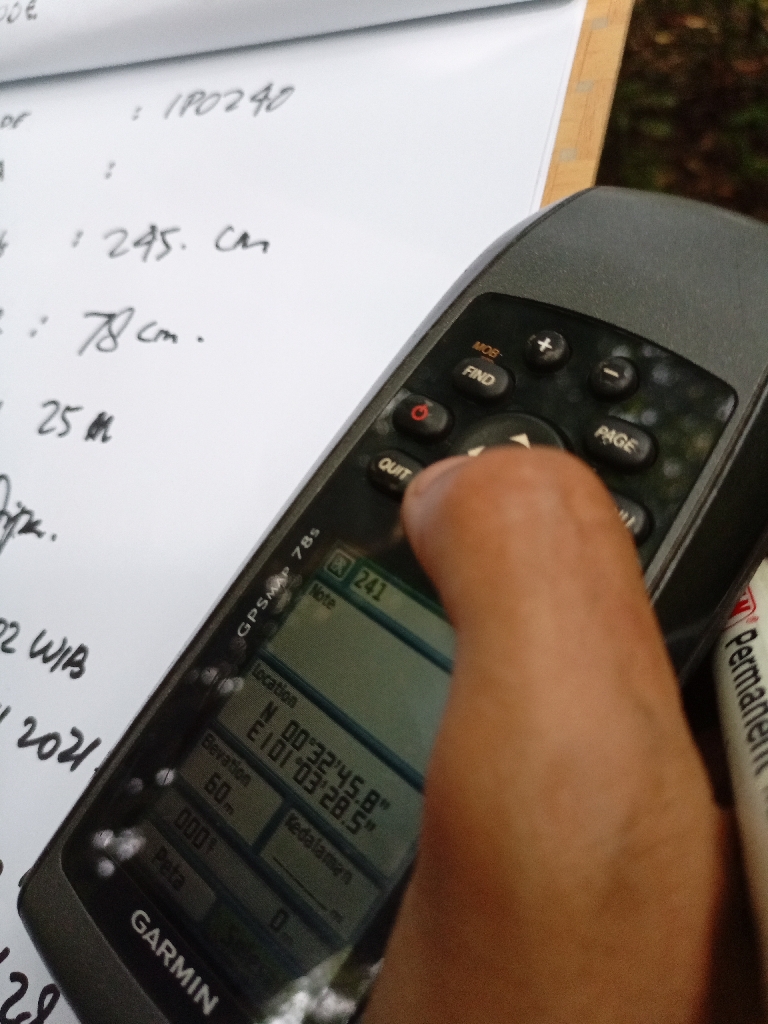 : IP0240
:
: 245. cm
: 78 cm.
25 m
WIB
2021
28
MOB
FIND
+
-
PAGE
QUIT
GPSMAP 78s
241
Note
Location
N 00°32'45.8"
E101°03'28.5"
Elevation
60m
Kedalaman
m
0m
Peta
GARMIN
Permanent